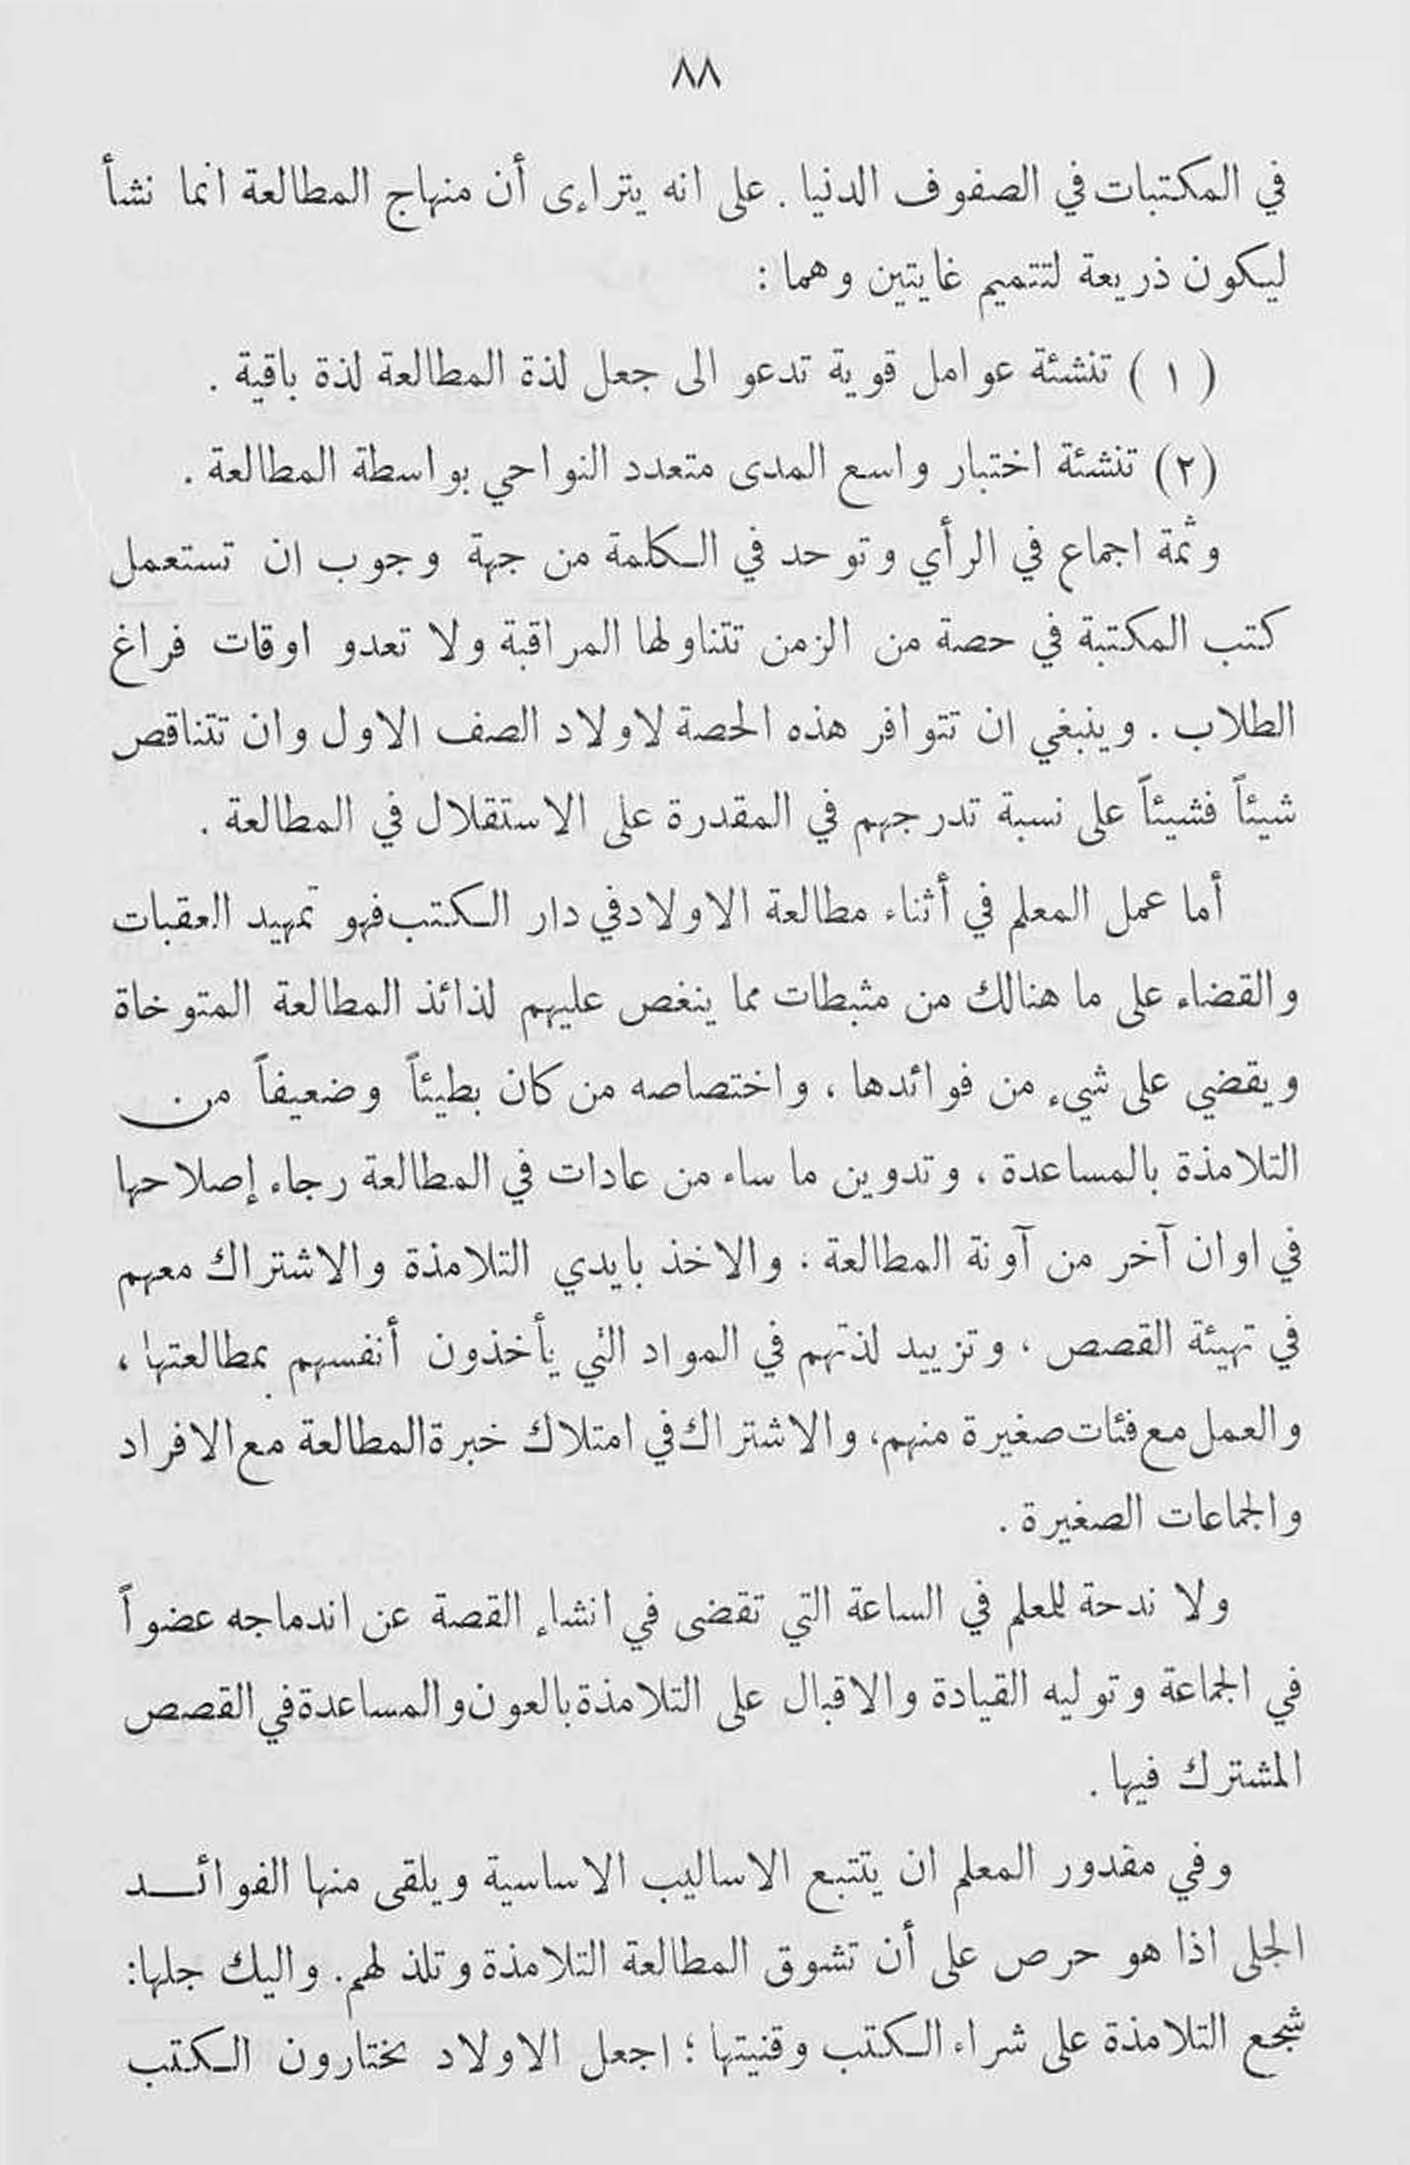 ٨٨
في المكتبات في الصفوف الدنيا . على انه يتراءى أن منهاج المطالعة انما نشأ
ليكون ذريعة لتتميم غايتين وهما :
( ١ ) تنشئة عوامل قوية تدعو الى جعل لذة المطالعة لذة باقية .
(٢) تنشئة اختبار واسع المدى متعدد النواحي بواسطة المطالعة .
وثمة اجماع في الرأي وتوحد في الكلمة من جهة وجوب ان تستعمل
كتب المكتبة في حصة من الزمن تتناولها المراقبة ولا تعدو اوقات فراغ
الطلاب . وينبغي ان تتوافر هذه الحصة لاولاد الصف الاول وان تتناقص
شيئاً فشيئاً على نسبة تدرجهم في المقدرة على الاستقلال في المطالعة .
أما عمل المعلم في أثناء مطالعة الاولاد في دار الكتب فهو تمهيد العقبات
والقضاء على ما هنالك من مثبطات مما ينغص عليهم لذائذ المطالعة المتوخاة
ويقضي على شيء من فوائدها ، واختصاصه من كان بطيئاً وضعيفاً من
التلامذة بالمساعدة ، وتدوين ما ساء من عادات في المطالعة رجاء إصلاحها
في اوان آخر من آونة المطالعة : والاخذ بايدي التلامذة والاشتراك معهم
في تهيئة القصص ، وتزييد لذتهم في المواد التي يأخذون أنفسهم بمطالعتها ،
والعمل مع فئات صغيرة منهم، والاشتراك في امتلاك خبرة المطالعة مع الافراد
والجماعات الصغيرة .
ولا ندحة للمعلم في الساعة التي تقضى في انشاء القصة عن اندماجه عضواً
في الجماعة وتوليه القيادة والاقبال على التلامذة بالعون والمساعدة في القصص
المشترك فيها .
وفي مقدور المعلم ان يتتبع الاساليب الاساسية ويلقى منها الفوائد
الجلى اذا هو حرص على أن تشوق المطالعة التلامذة وتلذ لهم. واليك جلها:
شجع التلامذة على شراء الكتب وقنيتها ؛ اجعل الاولاد يختارون الكتب